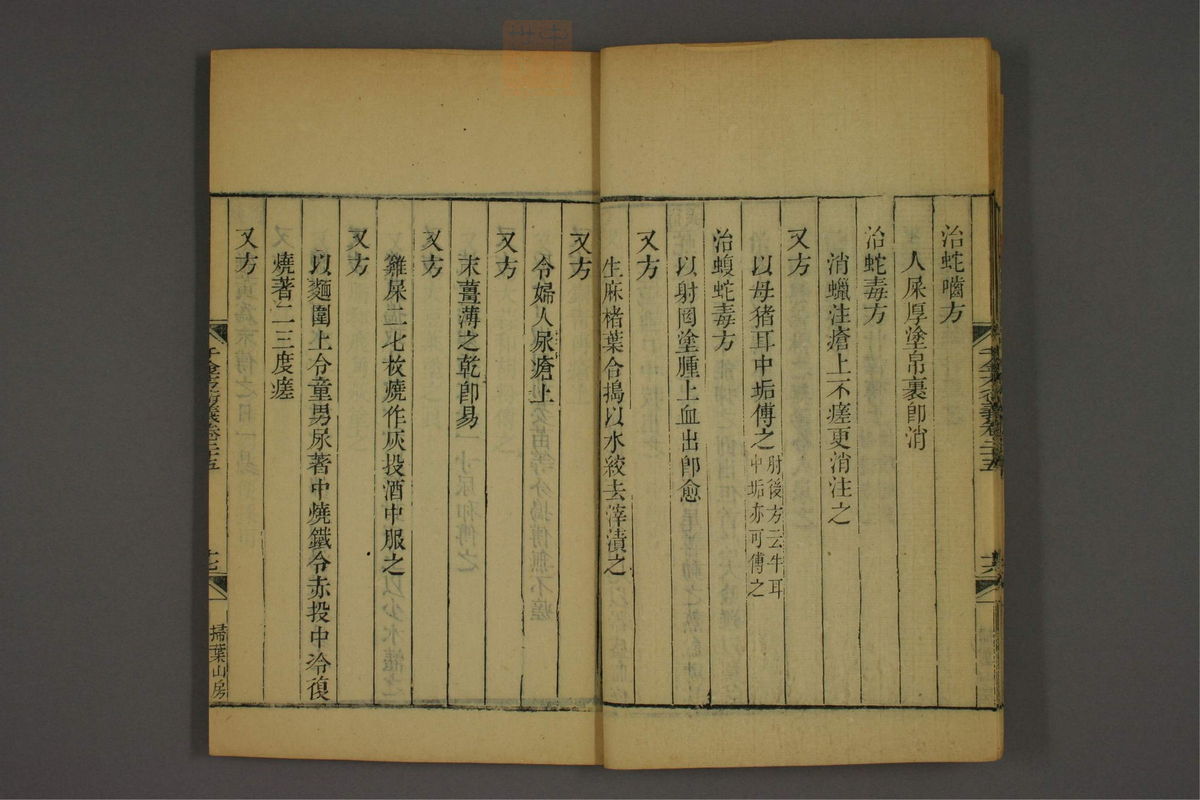 治蛇嚙方
人屎厚塗帛裹卽消
治蛇毒方
消蠟注瘡上不瘥更消注之
又方
以母猪耳中垢傅之肘後方云牛耳中垢亦可傅之
治蝮蛇毒方
以射罔塗腫上血出卽愈
又方
生麻楮葉合搗以水絞去滓漬之
千金方衍義卷二十五
十六
又方
令婦人尿瘡上
又方
末薑薄之乾卽易
又方
雞屎二七枚燒作灰投酒中服之
又方
以麵圍上令童男尿著中燒鐵令赤投中冷復
燒著二三度瘥
又方
千金方衍義卷二十五
十七
掃葉山房